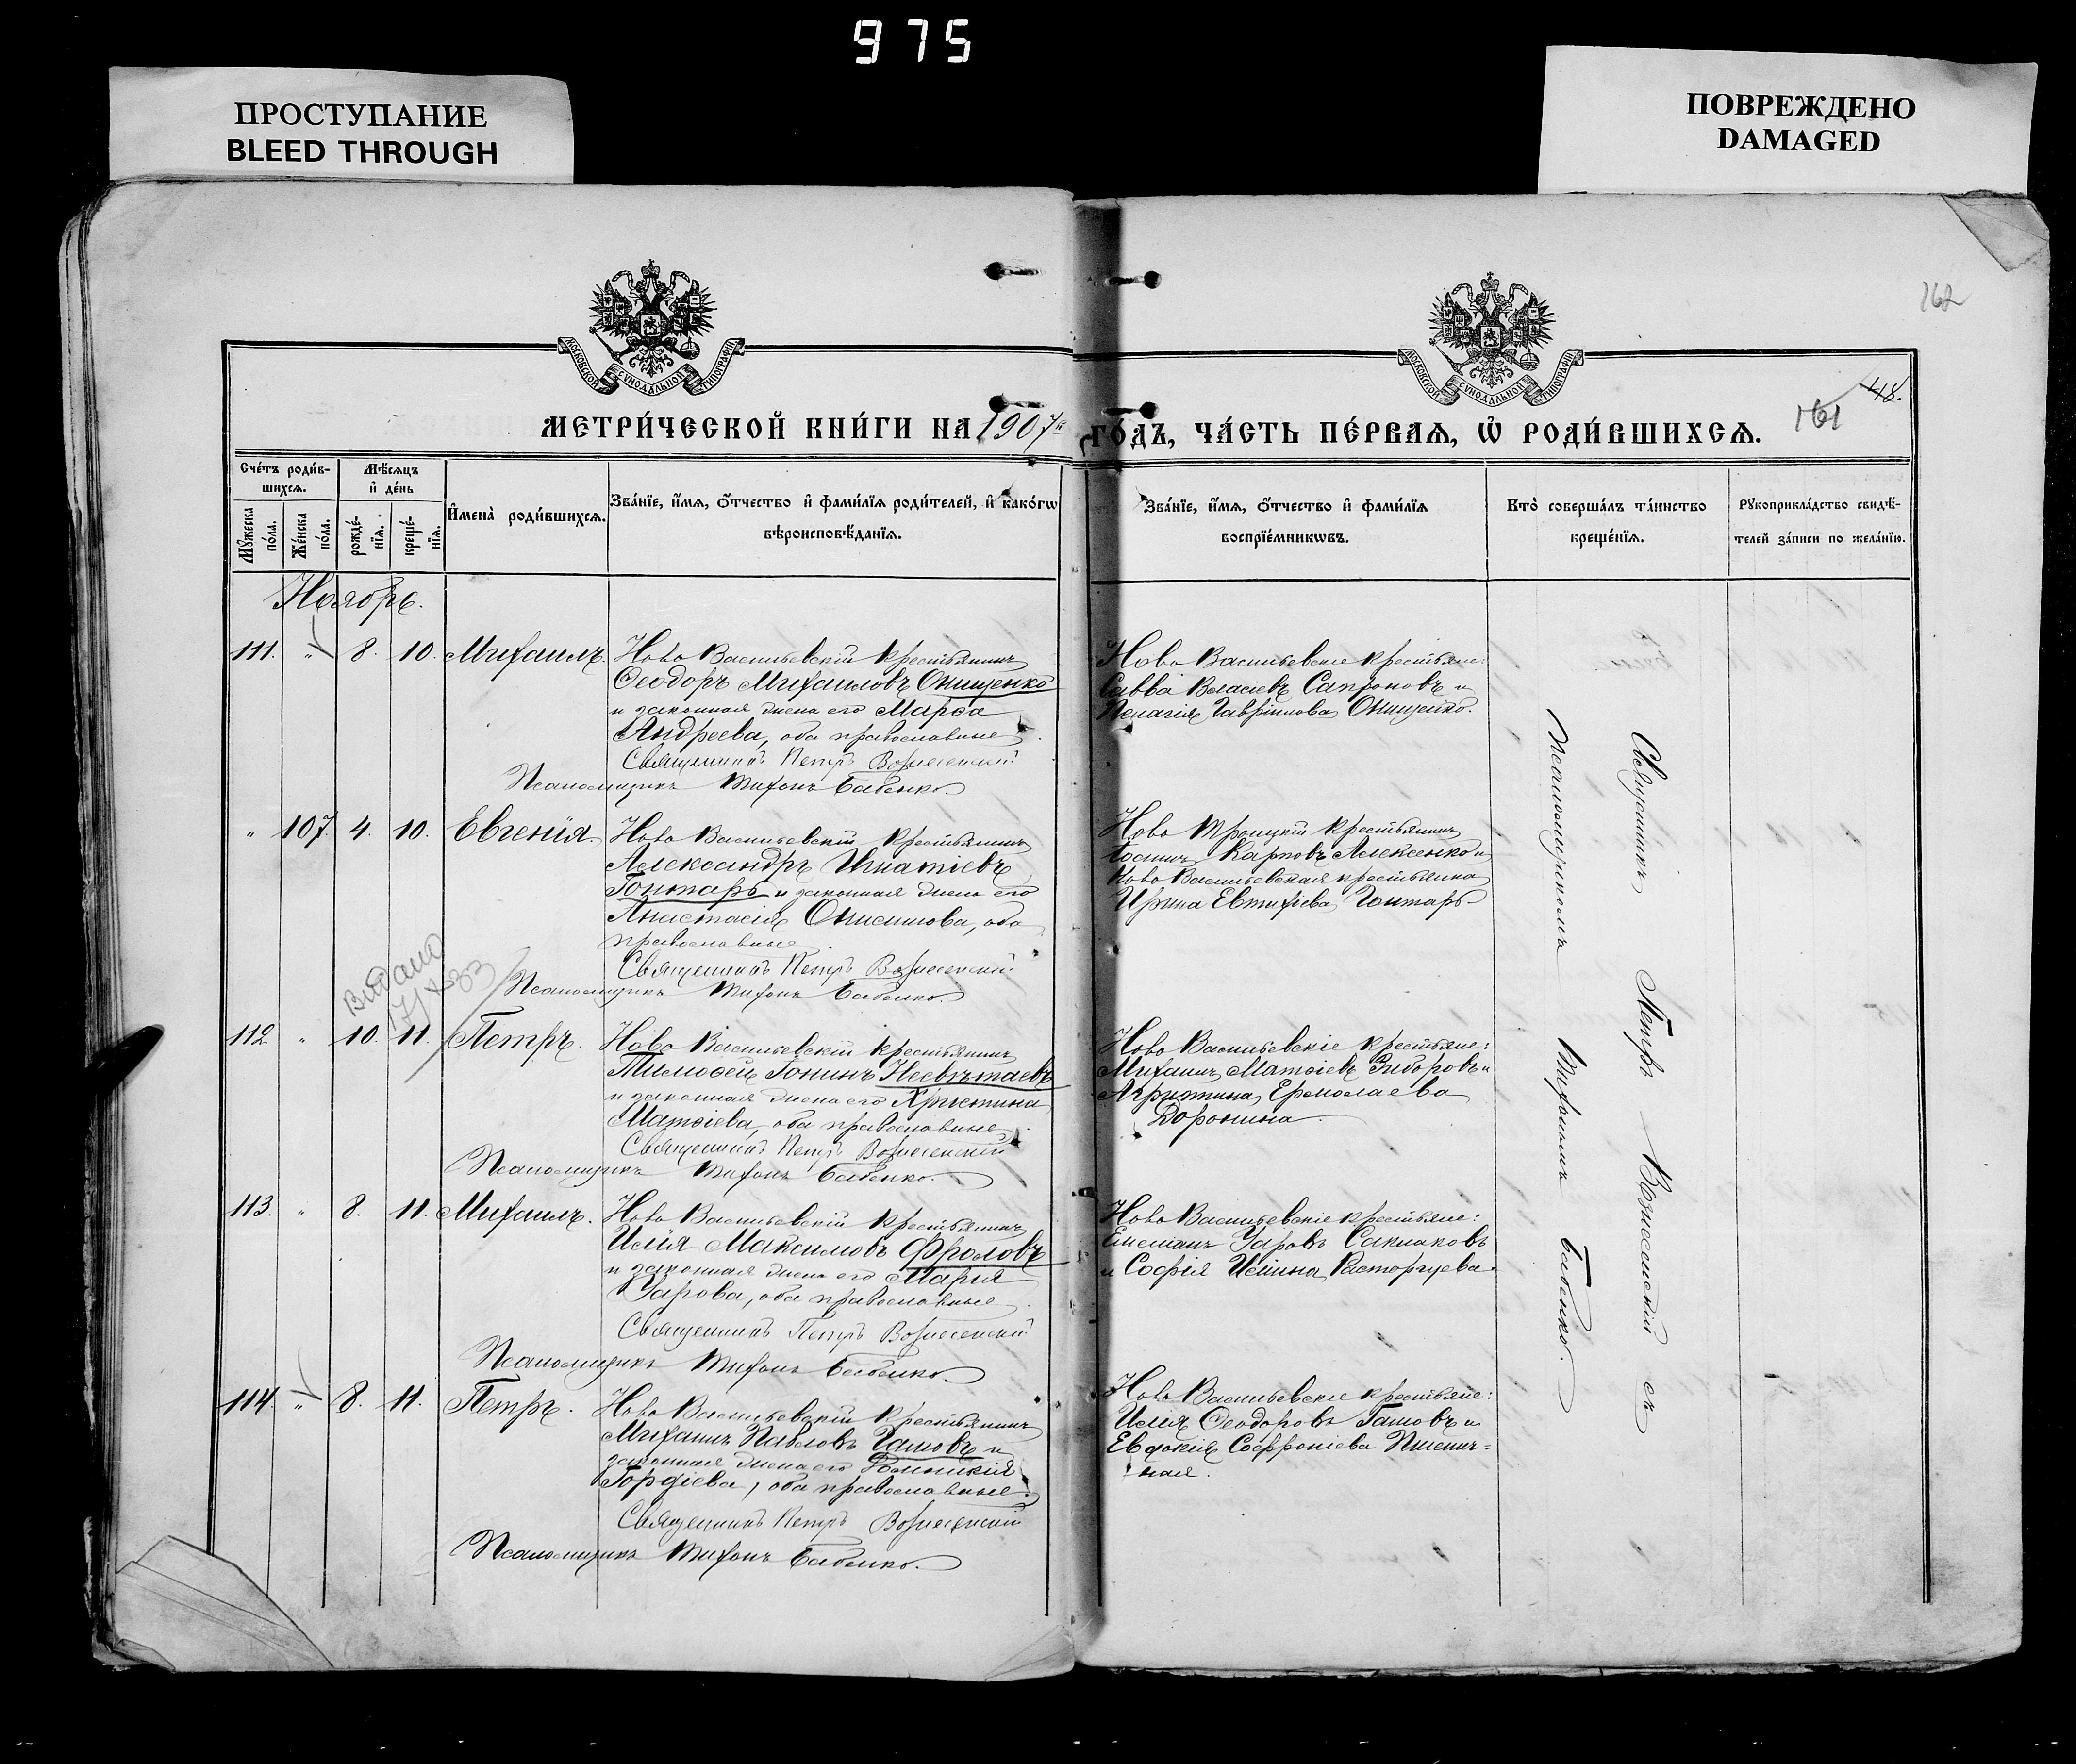 975
ПРОСТУПАНИЕ
BLEED THROUGH
ПОВРЕЖДЕНО
DAMAGED
162
МОСКОВСКОЙ СѴНОДАЛЬНОЙ ТИПОГРАФІИ
МОСКОВСКОЙ СѴНОДАЛЬНОЙ ТИПОГРАФІИ
161 48.
МЕТРИ́ЧЕСКОЙ КНИ́ГИ НА 1907й ГО́ДЪ, ЧА́СТЬ ПЕ́РВАѦ, Ѡ РОДИ́ВШИХСѦ.
Сче́тъ роди́в-
шихсѧ.
Мꙋ́жеска по́ла.
Же́нска по́ла.
Мѣ́сѧцъ
и҆ де́нь
рожде́-
нїѧ.
креще́-
нїѧ.
И҆мена̀ роди́вшихсѧ.
Зва́нїе, и҆́мѧ, ѻ҆́тчество и҆ фами́лїѧ роди́телей, и҆ како́гѡ
вѣроисповѣ́данїѧ.
Зва́нїе, и҆́мѧ, ѻ҆́тчество и҆ фами́лїѧ
воспрїе́мникѡвъ.
Кто̀ соверша́лъ та́инство
креще́нїѧ.
Рꙋкоприкла́дство свидѣ́-
телей за́писи по жела́нїю.
Ноябрь.
111. " 8. 10. Михаилъ.
Ново Васильевскій крестьянинъ
Ѳеодоръ Михаиловъ Онищенко
и законная жена его Марѳа
Андреева, оба православные.
Священникъ Петръ Вознесенскій
Псаломщикъ Тихонъ Бабенко.
Ново Васильевскіе крестьяне:
Савва Власіевъ Сапроновъ и
Пелагія Гавріилова Онищенко.
" 107. 4. 10. Евгенія.
Ново Васильевскій крестьянинъ
Александръ Игнатіевъ
Гонтарь и законная жена его
Анастасія Онисимова, оба
православные.
Священникъ Петръ Вознесенскій
Псаломщикъ Тихонъ Бабенко.
Ново Троицкій крестьянинъ
Карповъ Алексенко и
Ново Васильевская крестьянка
Ирина Евтихіева Гонтарь
Видано
112 " 10. 11. Петръ.
Ново Васильевскій крестьянинъ
Тимоѳей Іонинъ Несвѣтаевъ
и законная жена его Христина
Матѳіева, оба православные.
Священникъ Петръ Вознесенскій
Псаломщикъ Тихонъ Бабенко.
Ново Васильевскіе крестьяне:
Михаилъ Матѳіевъ Зиборовъ и
Агриппина Ермолаева
Доронина.
113. " 8. 11. Михаилъ.
Ново Васильевскій крестьянинъ
Илія Максимовъ Фроловъ
и законная жена его Марія
Уарова, оба православные.
Священникъ Петръ Вознесенскій
Псаломщикъ Тихонъ Бабенко.
Ново Васильевскіе крестьяне:
Уаровъ Саклаковъ
и Софія Иліина Расторгуева.
114. " 8. 11. Петръ.
Ново Васильевскій крестьянинъ
Михаилъ Павловъ Гамовъ и
законная жена его
Гордіева, оба православные.
Священникъ Петръ Вознесенскій
Псаломщикъ Тихонъ Бабенко.
Ново Васильевскіе крестьяне:
Илія Ѳеодоровъ Гамовъ и
Евдокія Софроніева Пшенич=
ная.
Священникъ Петръ Вознесенскій съ
псаломщикомъ Тихономъ Бабенко.